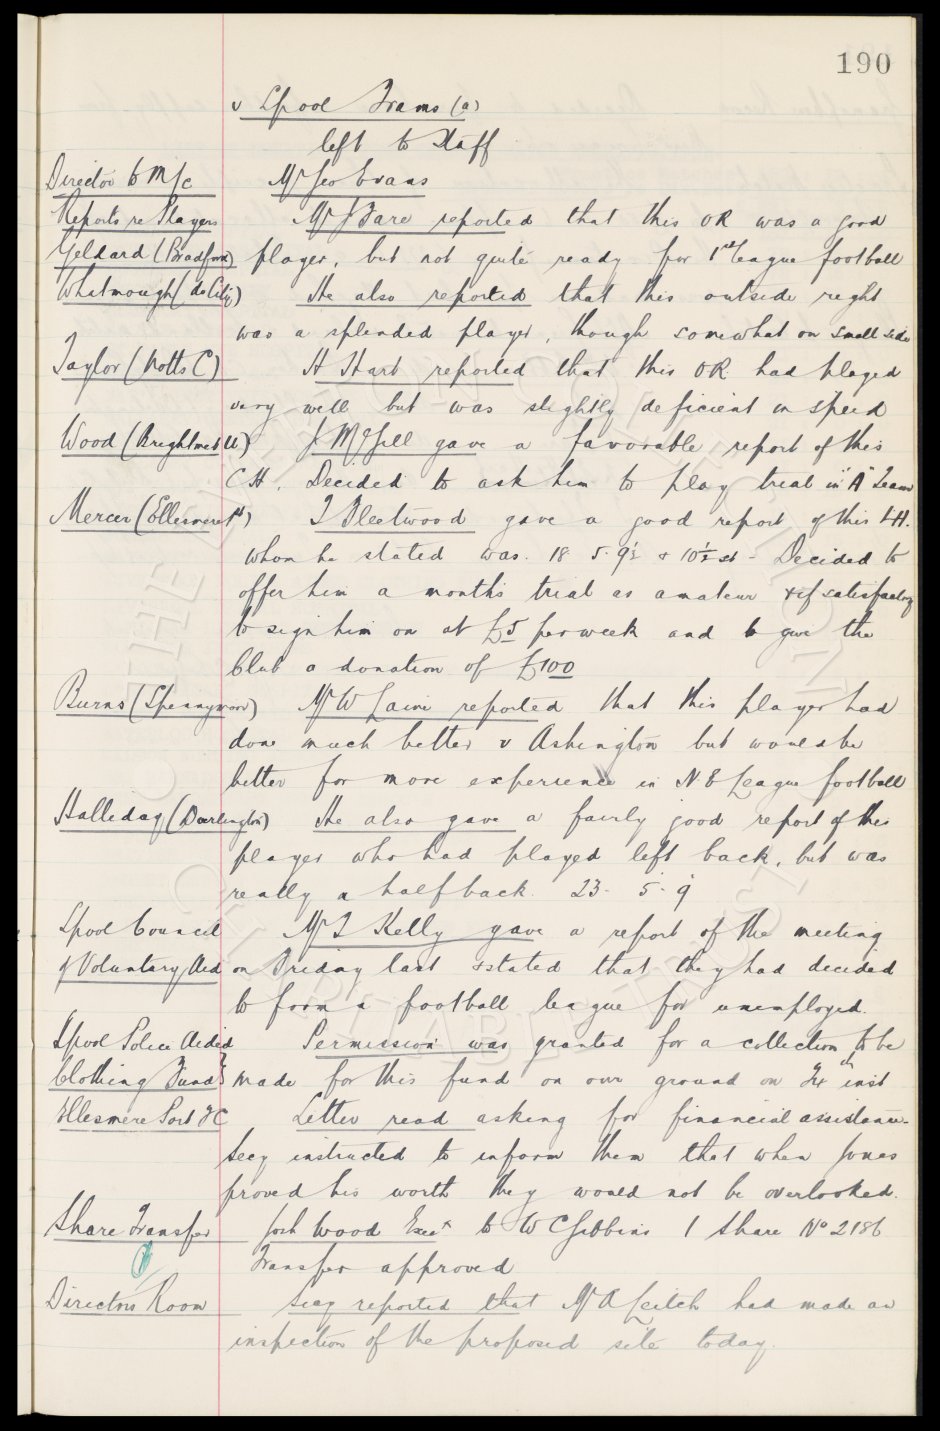 190
v Lpool Trams (a)
left to Staff
Director to M/c Mr Geo Evans
Reports re Players Mr J Fare reported that this OR was a good
Geldard (Bradford) player, but not quite ready for 1st League football
Whatmough (do City) He also reported that this outside right
was a splended player, though somewhat on small side
Taylor (Notts C) H Hart reported that this OR had played
very well but was slightly deficient in speed
Wood (Brightmet U) J McGill gave a favorable report of this
CH. Decided to ask him to play trial in "A" Team
Mercer (Ellesmere Pt) T Fleetwood gave a good report of this LH.
whom he stated was. 18 5-9½ & 10½ st - Decided to
offer him a month's trial as amateur & if satisfactory
to sign him on at £5 per week and to give the
Club a donation of £100
Burns (Spennymoor) Mr W Lavin reported that this player had
done much better v Ashington but would be
better for more experience in N E League football
Halliday (Darlington) He also gave a fairly good report of this
player who had played left back, but was
really a half back. 23- 5-9
Lpool Council Mr T Kelly gave a report of the meeting
of Voluntary Aid on Friday last & stated that they had decided
to form a football league for unemployed.
Lpool Police Aided Permission was granted for a collection to be
Clothing Fund} made for this fund on our ground on inst
Ellesmere Port FC Letter read asking for financial assistance.
Secy instructed to inform them that when Jones
proved his worth they would not be overlooked.
Share Transfer Josh Wood Exec to W C Gibbins 1 Share No 2186
Transfer approved
Directors Room Secy reported that Mr A Leitch had made an
inspection of the proposed site today.